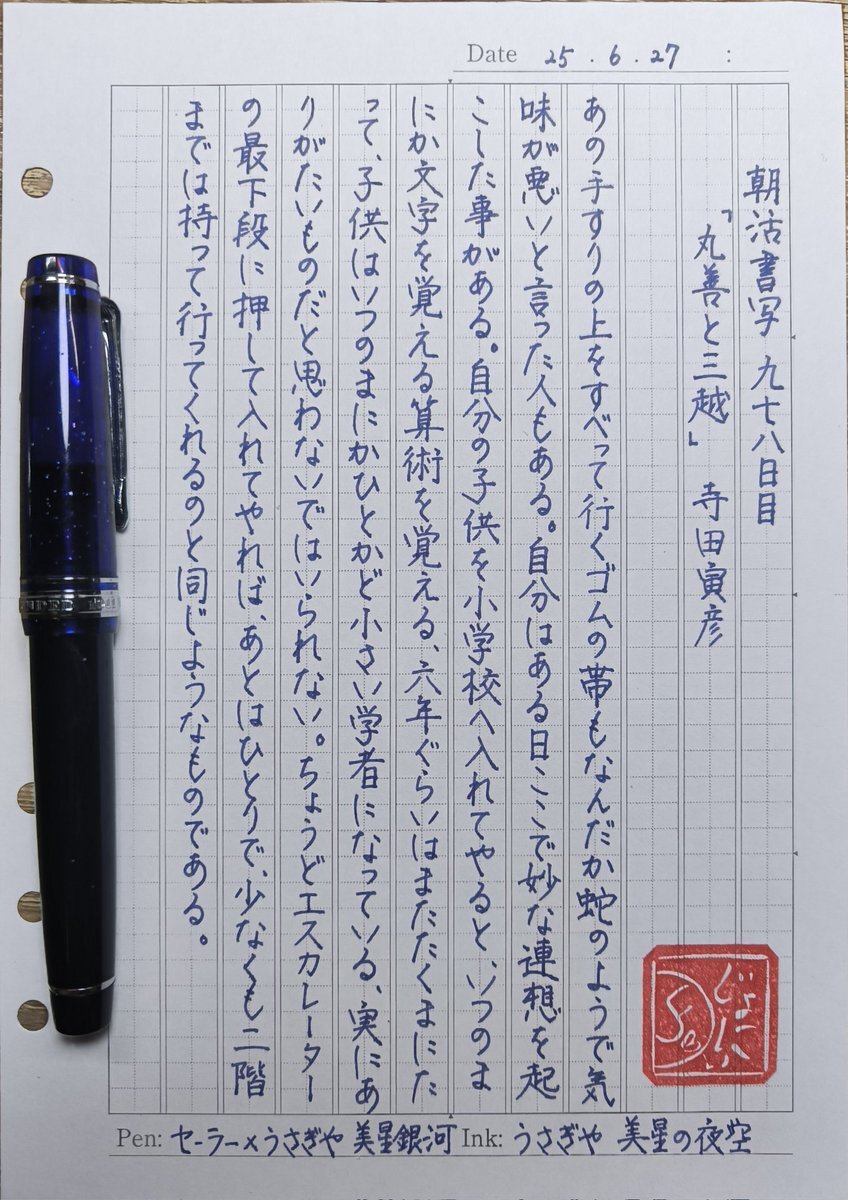 Date 25.6.27 :
朝活書写 九七八日目
「丸善と三越」 寺田寅彦
あの手すりの上をすべって行くゴムの帯もなんだか蛇のようで気
味が悪いと言った人もある。自分はある日ここで妙な連想を起
こした事がある。自分の子供を小学校へ入れてやると、いつのま
にか文字を覚える算術を覚える、六年ぐらいはまたたくまにた
って、子供はいつのまにかひとかど小さい学者になっている、実にあ
りがたいものだと思わないではいられない。ちょうどエスカレーター
の最下段に押して入れてやれば、あとはひとりで、少なくも二階
までは持って行ってくれるのと同じようなものである。
Pen: セーラー×うさぎや 美星銀河 Ink: うさぎや 美星の夜空